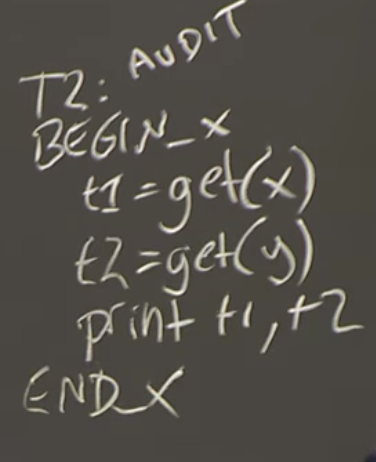 T2: AUDIT
BEGIN_X
t1=get(x)
t2=get(y)
print t1,t2
END_X